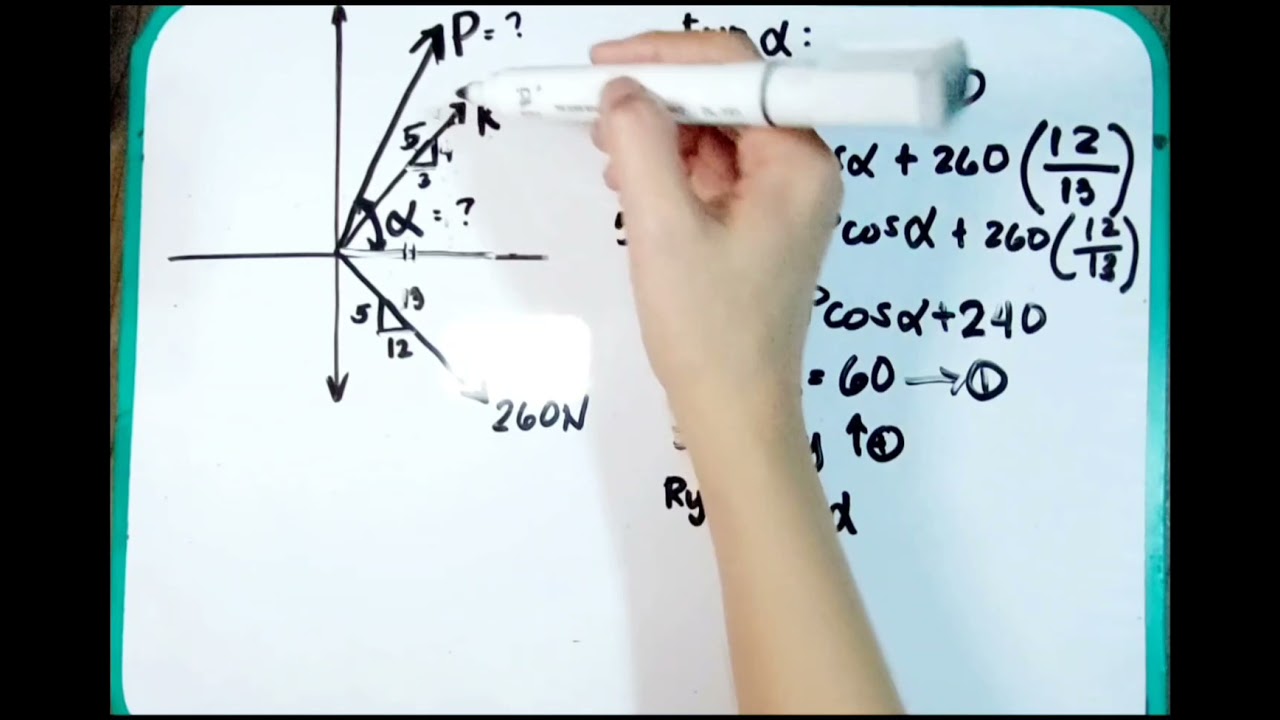 P = ?
R
5
4
3
α = ?
5
13
12
260N
α:
α + 260 (12/13)
cosα + 260 (12/13)
Pcosα + 240
= 60 → ①
y ↑ ⊕
Ry
α